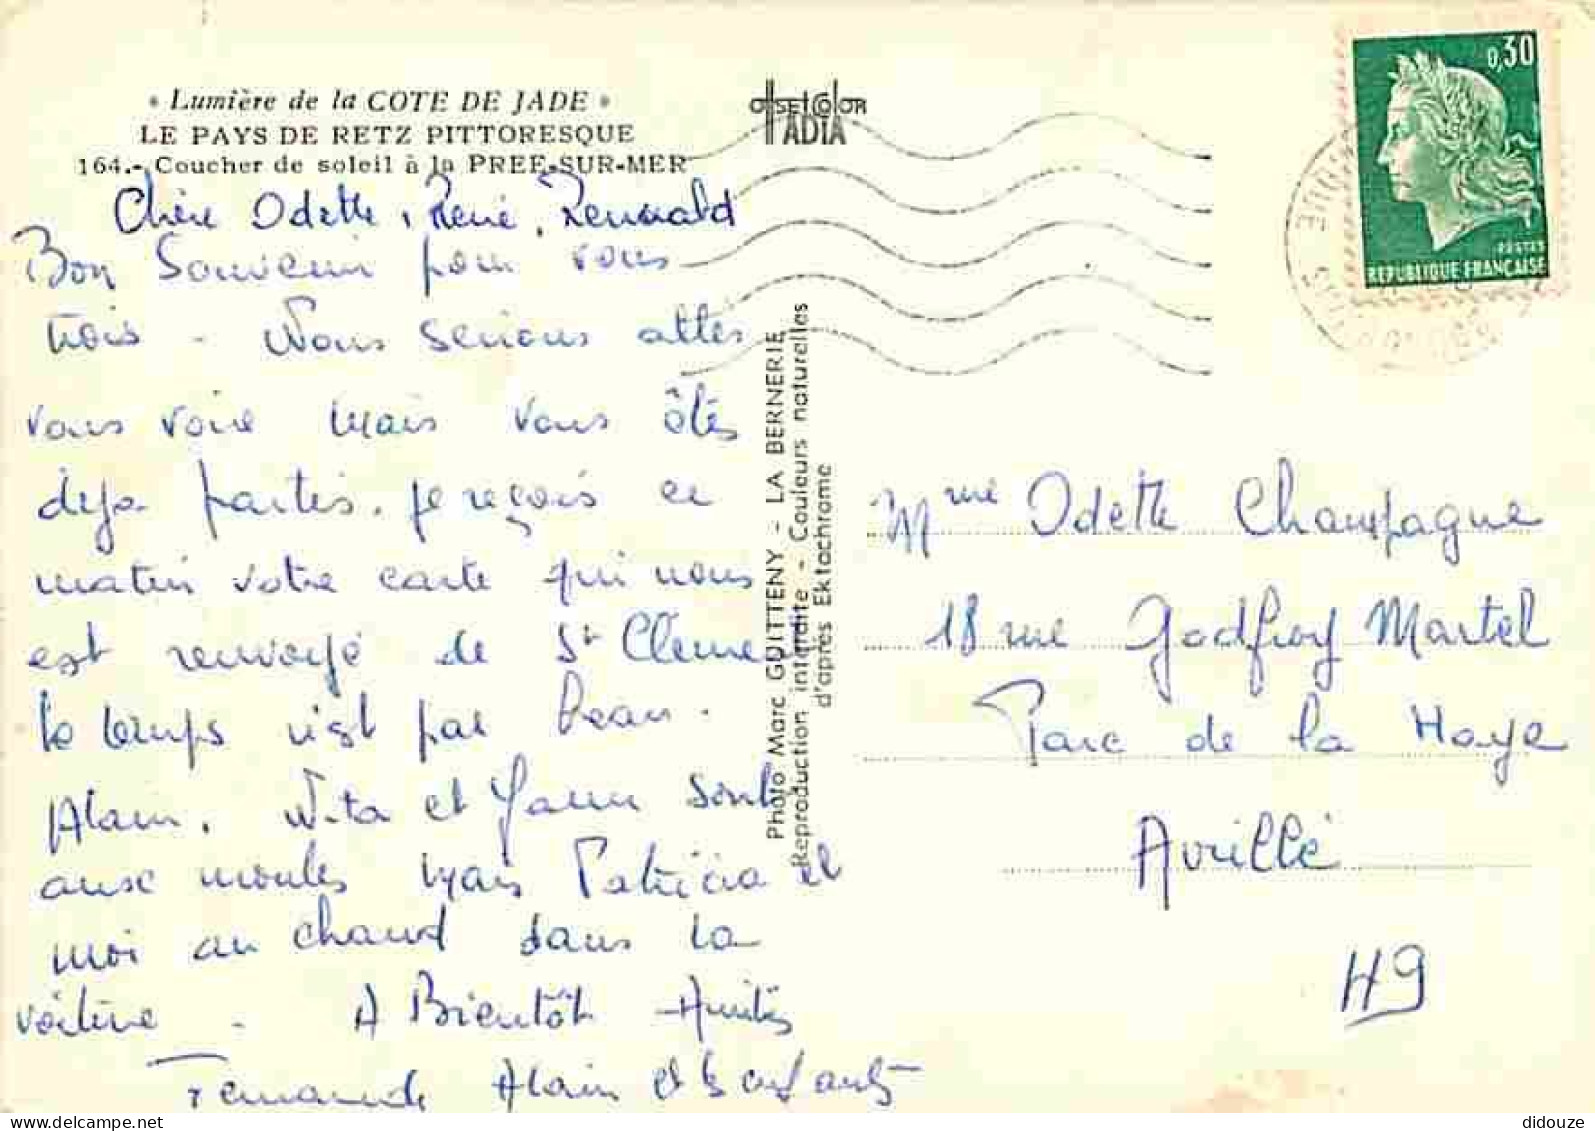 « Lumière de la COTE DE JADE »
LE PAYS DE RETZ PITTORESQUE
164.- Coucher de soleil à la PREE-SUR-MER
OFFSETCOLOR
IADIA
0,30
POSTES
REPUBLIQUE FRANÇAISE
Chère Odette, René,
Bon Souvenir pour vous
trois - Nous serions allés
vous voire mais vous êtes
deja partis. je reçois ce
matin votre carte qui nous
est renvoyé de St Cléme
le temps n'est pas beau.
Alain, et Yann sont
aux moules mais Patricia et
moi au chaud dans la
voiture - A Bientôt Amitiés
Fernande Alain et les enfants
Photo Marc GUITTENY - LA BERNERIE
Reproduction interdite - Couleurs naturelles
d'après Ektachrome
Mme Odette Champagne
18 rue Godfroy Martel
Parc de la Haye
Avrillé
49
didouze
delcampe.net